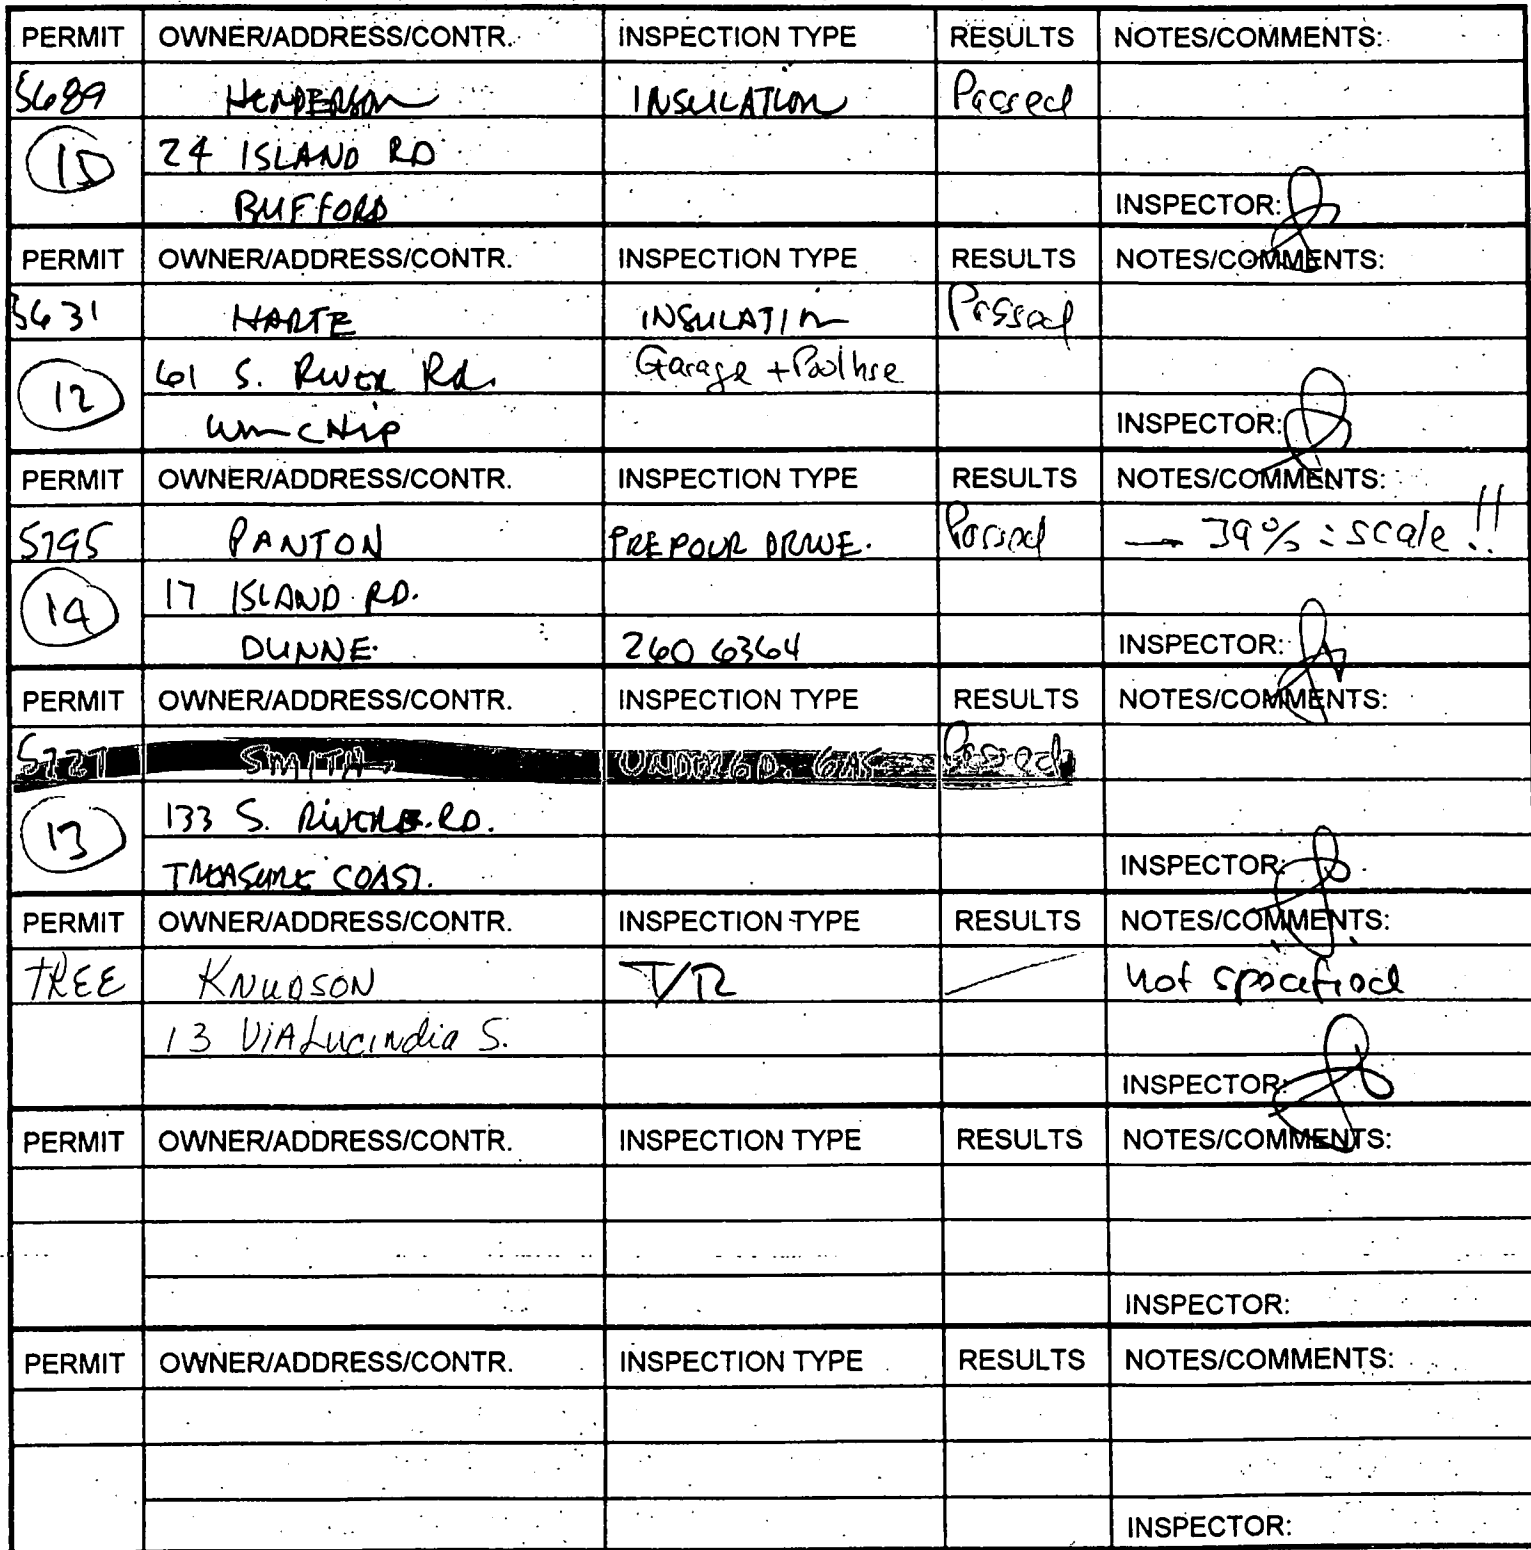 PERMIT OWNER/ADDRESS/CONTR. INSPECTION TYPE RESULTS NOTES/COMMENTS:
5689 HENDERSON INSULATION Passed
24 ISLAND RD
BUFFORD INSPECTOR:
PERMIT OWNER/ADDRESS/CONTR. INSPECTION TYPE RESULTS NOTES/COMMENTS:
5631 HARTE INSULATION Passed
12 61 S. RIVER RD. Garage + Poolhse
INSPECTOR:
PERMIT OWNER/ADDRESS/CONTR. INSPECTION TYPE RESULTS NOTES/COMMENTS:
5795 PANTON PREPOUR DRIVE. Passed → 39% : scale !!
14 17 ISLAND RD.
DUNNE. 260 6364 INSPECTOR:
PERMIT OWNER/ADDRESS/CONTR. INSPECTION TYPE RESULTS NOTES/COMMENTS:
5727 SMITH UNDERGD. GAS Passed
13 133 S. RIVER RD.
TREASURE COAST. INSPECTOR:
PERMIT OWNER/ADDRESS/CONTR. INSPECTION TYPE RESULTS NOTES/COMMENTS:
TREE KNUDSON T/R Not specified
13 VIA Lucindia S.
INSPECTOR:
PERMIT OWNER/ADDRESS/CONTR. INSPECTION TYPE RESULTS NOTES/COMMENTS:
INSPECTOR:
PERMIT OWNER/ADDRESS/CONTR. INSPECTION TYPE RESULTS NOTES/COMMENTS:
INSPECTOR: